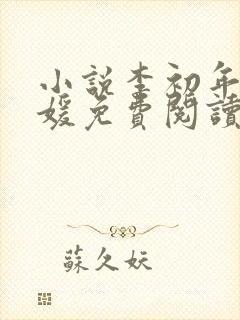 小說李初年
媛免費閱讀
蘇久妖